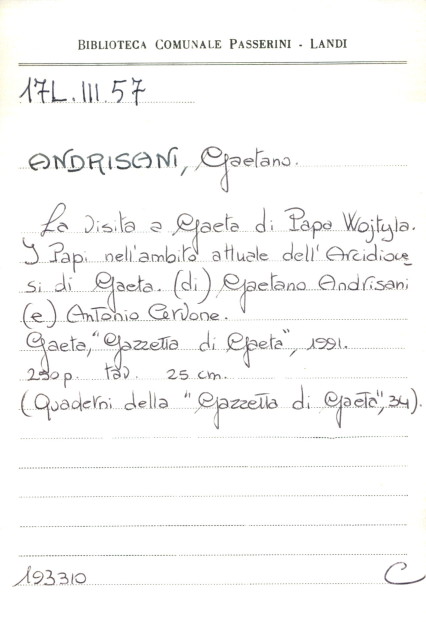 BIBLIOTECA COMUNALE PASSERINI - LANDI
17L.III.57
ANDRISANI, Gaetano.
La visita a Gaeta di Papa Wojtyla.
I Papi nell'ambito attuale dell'Arcidioce
si di Gaeta. (di) Gaetano Andrisani
(e) Antonio Cervone.
Gaeta, "Gazzetta di Gaeta", 1991.
290 p. tav. 25 cm.
(Quaderni della "Gazzetta di Gaeta", 34).
193310 C